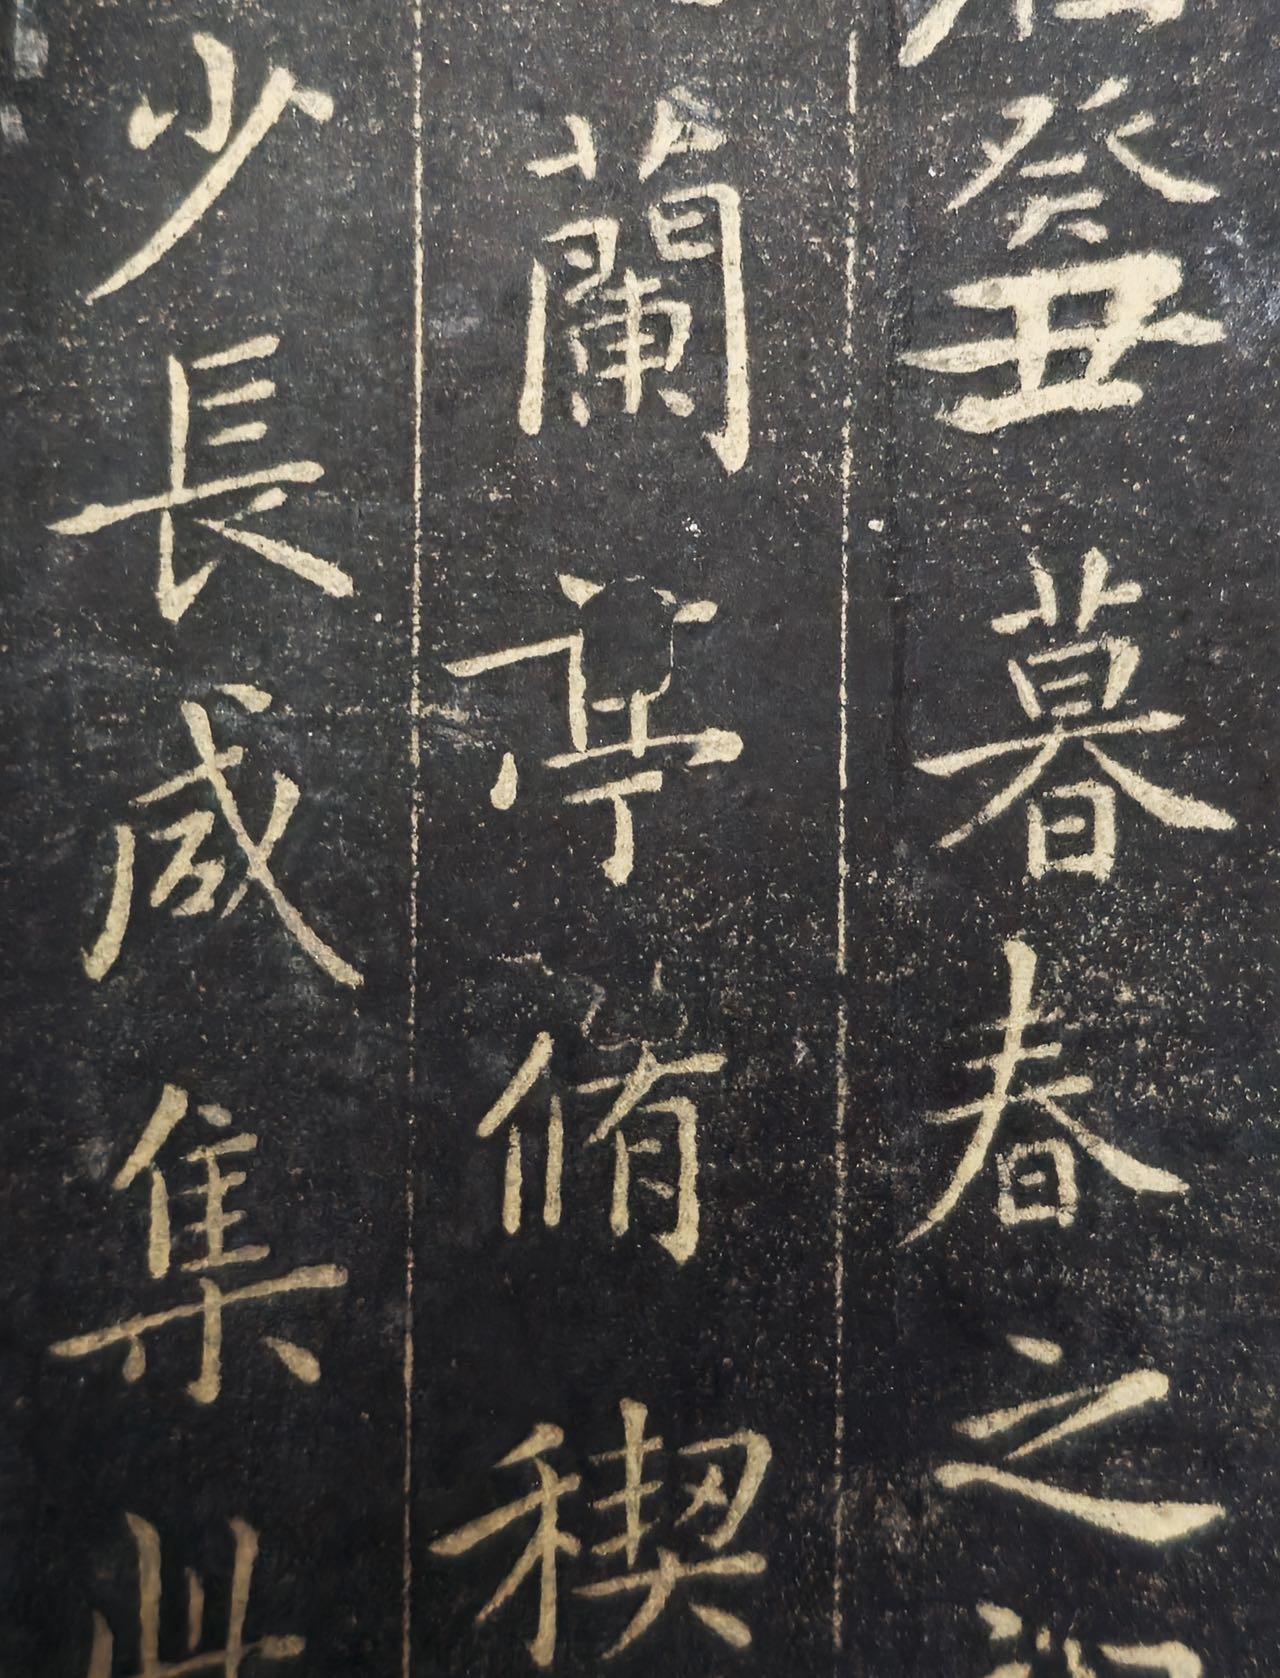 癸丑暮春之初
蘭亭脩稧
少長咸集此